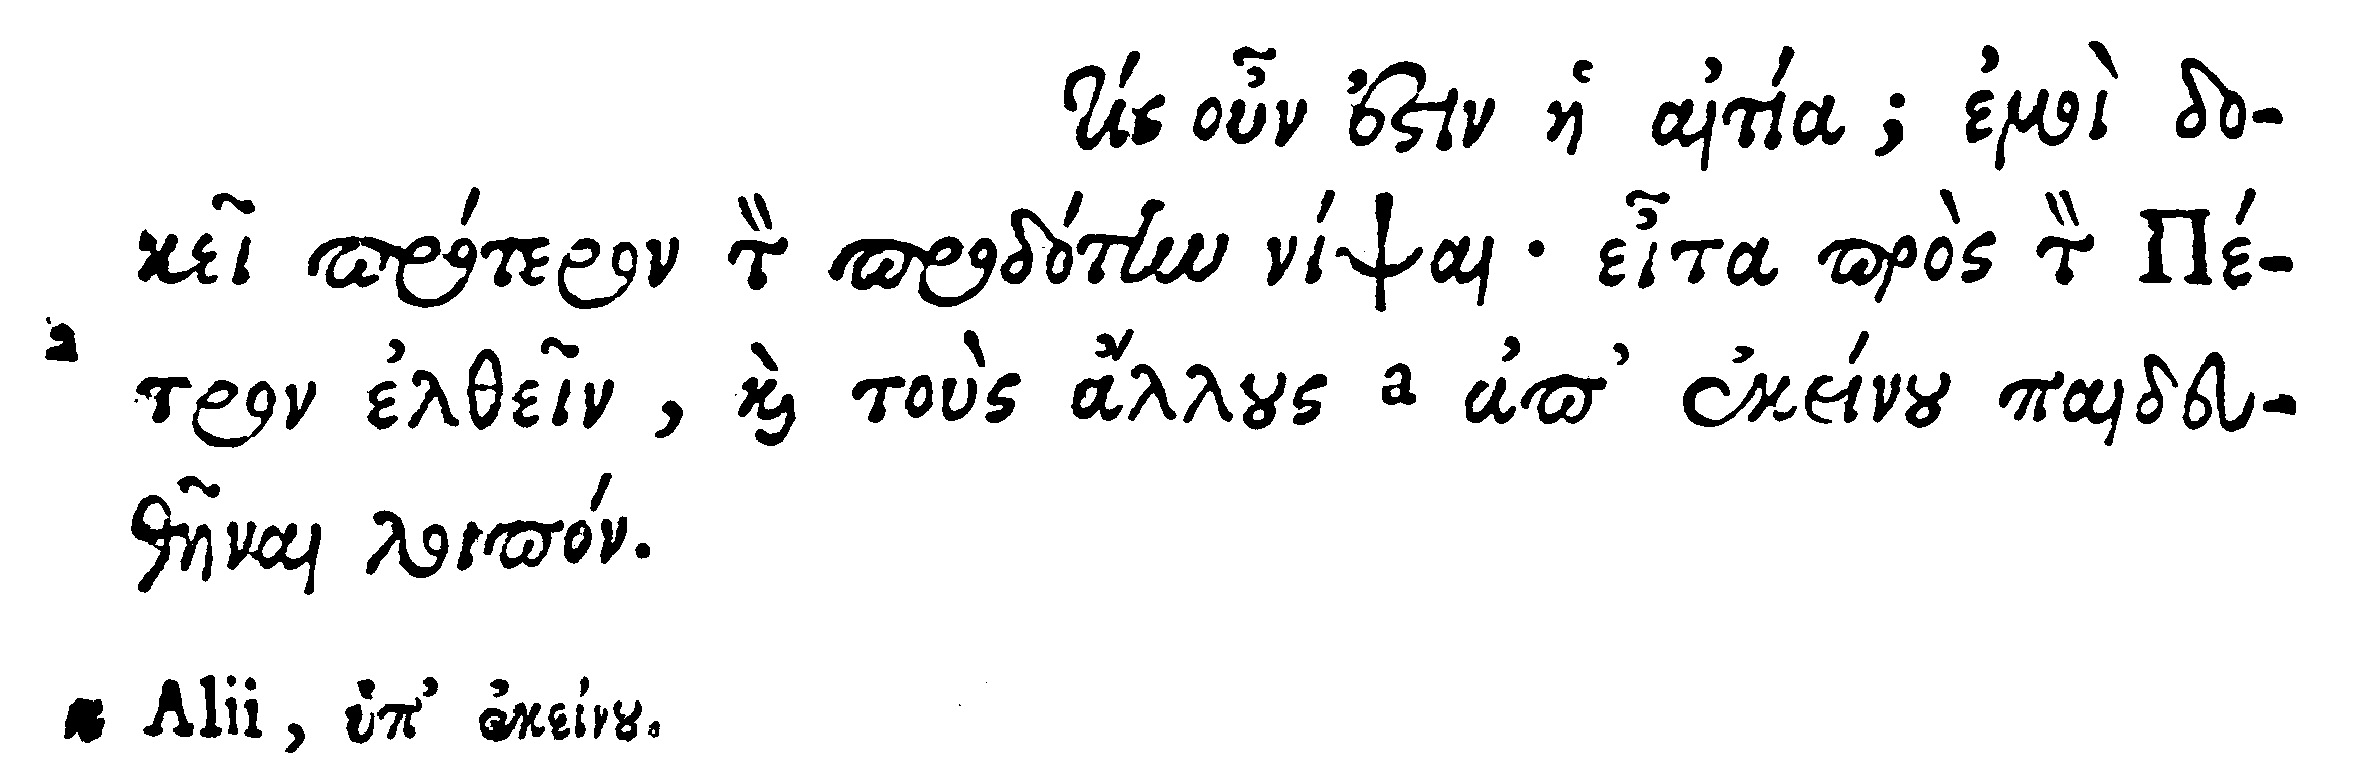 τίς οὖν ἐστιν ἡ αἰτία; ἐμοὶ δο-
κεῖ πρότερον τὸν προδότην νίψαι· εἶτα πρὸς τὸν Πέ-
τρον ἐλθεῖν, καὶ τοὺς ἄλλους a ἀπ’ ἐκείνου παιδευ-
θῆναι λοιπόν.
a Alii, ὑπ’ ἐκείνου.